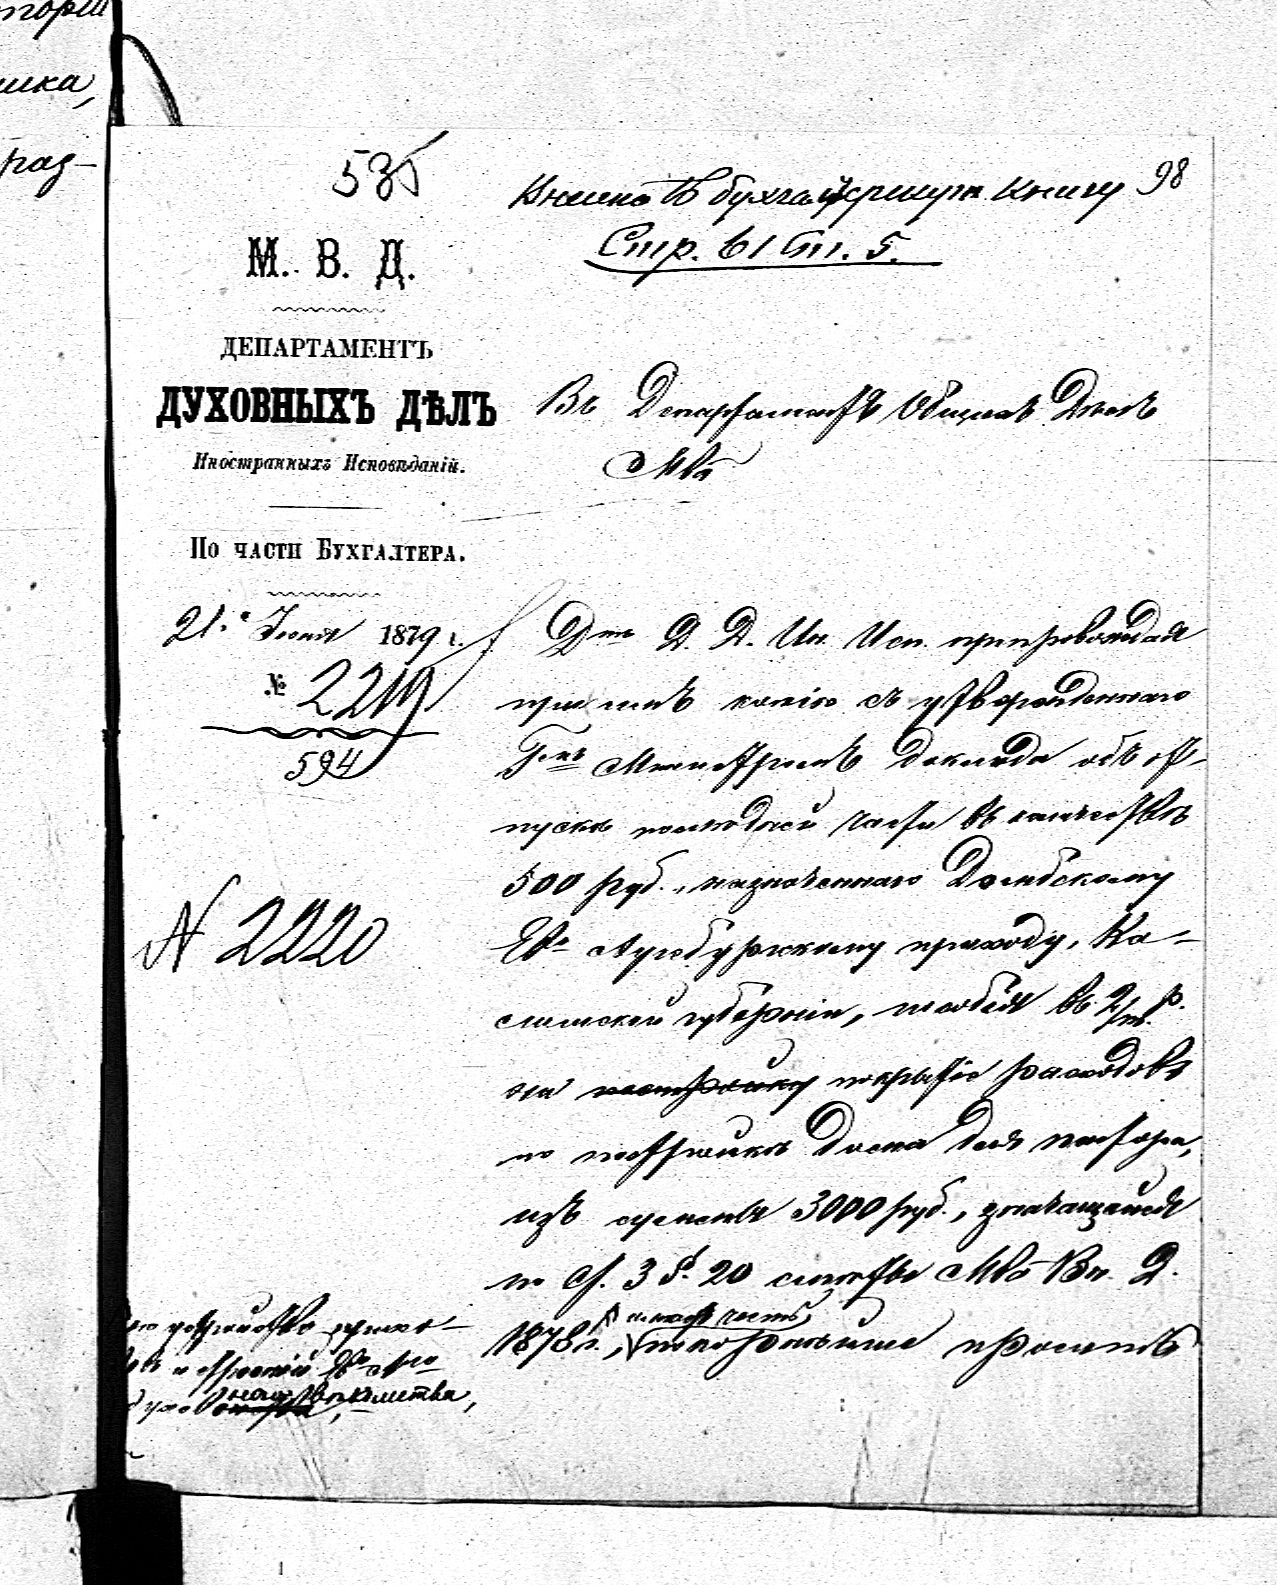 тори
ика,
раз-
535
98
Внесено въ бухгалтерскую книгу
Стр. 61 ст. 5.
М. В. Д.
ДЕПАРТАМЕНТЪ
ДУХОВНЫХЪ ДѢЛЪ
Иностранныхъ Исповѣданій.
По части Бухгалтера.
21. Іюня 1879 г.
№ 2219
594
N 2220
Въ Департаментъ Общихъ Дѣлъ
Мва
Д-тъ Д. Д. Ин. Исп. препровождая
при семъ копію съ утвержденнаго
Г-мъ Министромъ доклада объ от-
пускѣ послѣдней части въ количествѣ
500 руб., назначеннаго Домбскому
Ев. Аугсбургскому приходу, Ка-
лишской губерніи, пособія въ 2/т. р.
на постройку покрытіе расходовъ
по постройкѣ дома для пастора,
изъ суммы 3000 руб., значащейся
по ст. 3 § 20 смѣты Мва Вн. Д.
1878 г., покорнѣйше проситъ
на устройство
и строеній
духо наго вѣдомства,